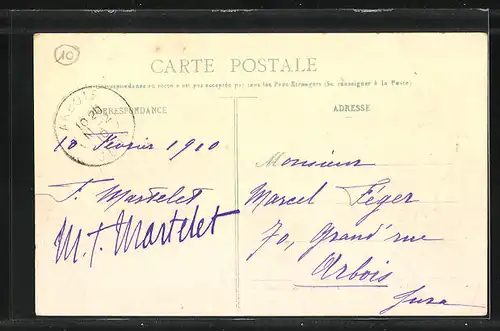 10
CARTE POSTALE
Correspondance au recto n'est pas acceptée par tous les Pays Etrangers (Se renseigner à la Poste)
CORRESPONDANCE
ADRESSE
ARBOIS
18 Février 1910
T. Martelet
M. T. Martelet
Monsieur
Marcel Féger
70, Grand'rue
Arbois
Jura